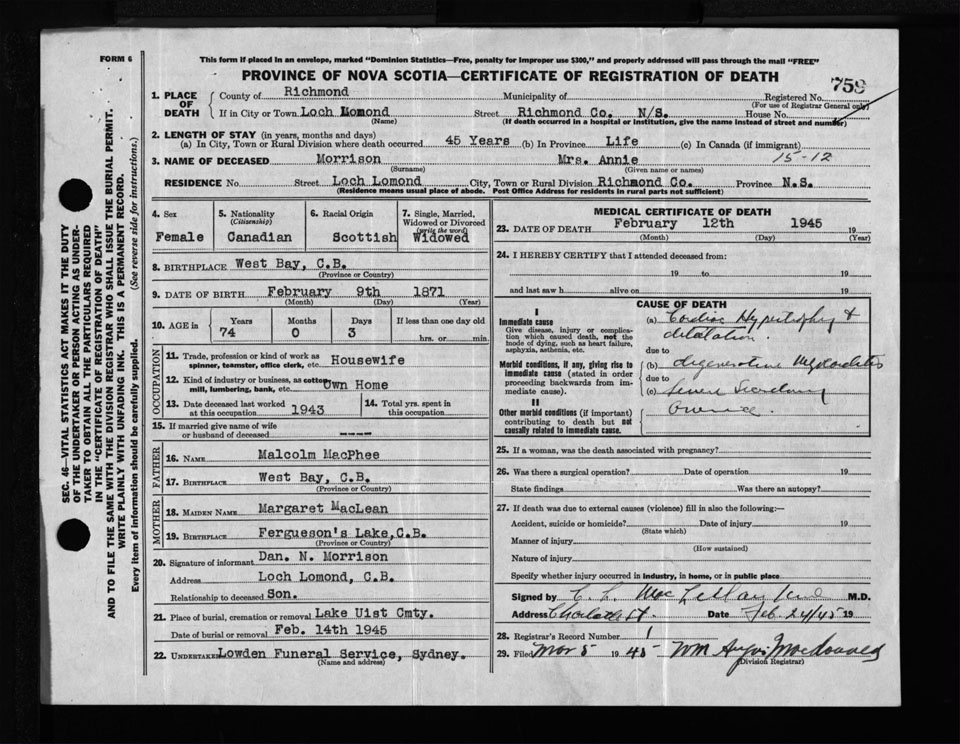 FORM 6
This form if placed in an envelope, marked "Dominion Statistics—Free, penalty for improper use $300," and properly addressed will pass through the mail "FREE"
PROVINCE OF NOVA SCOTIA—CERTIFICATE OF REGISTRATION OF DEATH
759
1. PLACE OF DEATH County of Richmond Municipality of Registered No.
(For use of Registrar General only)
If in City or Town Loch Lomond Street Richmond Co. N/S. House No.
(Name) (If death occurred in a hospital or institution, give the name instead of street and number)
2. LENGTH OF STAY (in years, months and days)
(a) In City, Town or Rural Division where death occurred 45 Years (b) In Province Life (c) In Canada (if immigrant)
15-12
3. NAME OF DECEASED Morrison Mrs. Annie
(Surname) (Given name or names)
RESIDENCE No Street Loch Lomond City, Town or Rural Division Richmond Co. Province N.S.
(Residence means usual place of abode. Post Office Address for residents in rural parts not sufficient)
4. Sex Female
5. Nationality (Citizenship) Canadian
6. Racial Origin Scottish
7. Single, Married, Widowed or Divorced (write the word) Widowed
8. BIRTHPLACE West Bay, C.B.
(Province or Country)
9. DATE OF BIRTH February 9th 1871
(Month) (Day) (Year)
10. AGE in Years Months Days If less than one day old
74 0 3 hrs. or min.
OCCUPATION
11. Trade, profession or kind of work as spinner, teamster, office clerk, etc. Housewife
12. Kind of industry or business, as cotton mill, lumbering, bank, etc. Own Home
13. Date deceased last worked at this occupation 1943
14. Total yrs. spent in this occupation
15. If married give name of wife or husband of deceased ----
FATHER
16. NAME Malcolm MacPhee
17. BIRTHPLACE West Bay, C.B.
(Province or Country)
MOTHER
18. MAIDEN NAME Margaret MacLean
19. BIRTHPLACE Fergueson's Lake, C.B.
(Province or Country)
20. Signature of informant Dan. N. Morrison
Address Loch Lomond, C.B.
Relationship to deceased Son.
21. Place of burial, cremation or removal Lake Uist Cmty.
Date of burial or removal Feb. 14th 1945
22. UNDERTAKER Lowden Funeral Service, Sydney.
(Name and address)
MEDICAL CERTIFICATE OF DEATH
23. DATE OF DEATH February 12th 1945 19
(Month) (Day) (Year)
24. I HEREBY CERTIFY that I attended deceased from:
19 to 19
and last saw h alive on 19
CAUSE OF DEATH
I
Immediate cause
Give disease, injury or complication which caused death, not the mode of dying, such as heart failure, asphyxia, asthenia, etc.
(a) Cardiac Hypertrophy & dilatation.
due to
Morbid conditions, if any, giving rise to immediate cause (stated in order proceeding backwards from immediate cause).
(b) degenerative Myocarditis
due to
(c) Severe Secondary
II
Other morbid conditions (if important) contributing to death but not causally related to immediate cause.
25. If a woman, was the death associated with pregnancy?
26. Was there a surgical operation? Date of operation 19
State findings Was there an autopsy?
27. If death was due to external causes (violence) fill in also the following:—
Accident, suicide or homicide? Date of injury 19
(State which)
Manner of injury
(How sustained)
Nature of injury
Specify whether injury occurred in industry, in home, or in public place
Signed by M.D.
Address Date Feb. 24/45 19
28. Registrar's Record Number 1
29. Filed Mar 5 1945 Wm Angus Macdonald
(Division Registrar)
SEC. 46—VITAL STATISTICS ACT MAKES IT THE DUTY
OF THE UNDERTAKER OR PERSON ACTING AS UNDER-
TAKER TO OBTAIN ALL THE PARTICULARS REQUIRED
IN THE "CERTIFICATE OF REGISTRATION OF DEATH"
AND TO FILE THE SAME WITH THE DIVISION REGISTRAR WHO SHALL ISSUE THE BURIAL PERMIT.
WRITE PLAINLY WITH UNFADING INK. THIS IS A PERMANENT RECORD.
Every item of information should be carefully supplied. (See reverse side for instructions.)